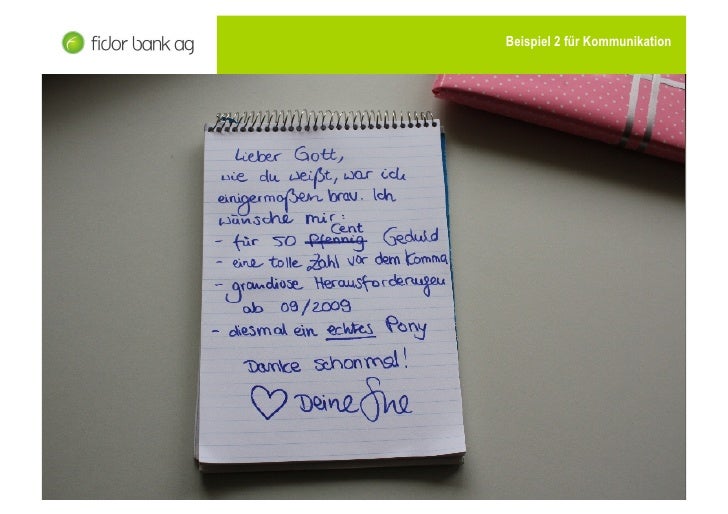 fidor bank ag
Beispiel 2 für Kommunikation
Lieber Gott,
wie du weißt, war ich
einigermaßen brav. Ich
wünsche mir:
- für 50 Pfennig Cent Geduld
- eine tolle Zahl vor dem Komma
- grandiose Herausforderungen
ab 09/2009
- diesmal ein echtes Pony
Danke schonmal!
Deine